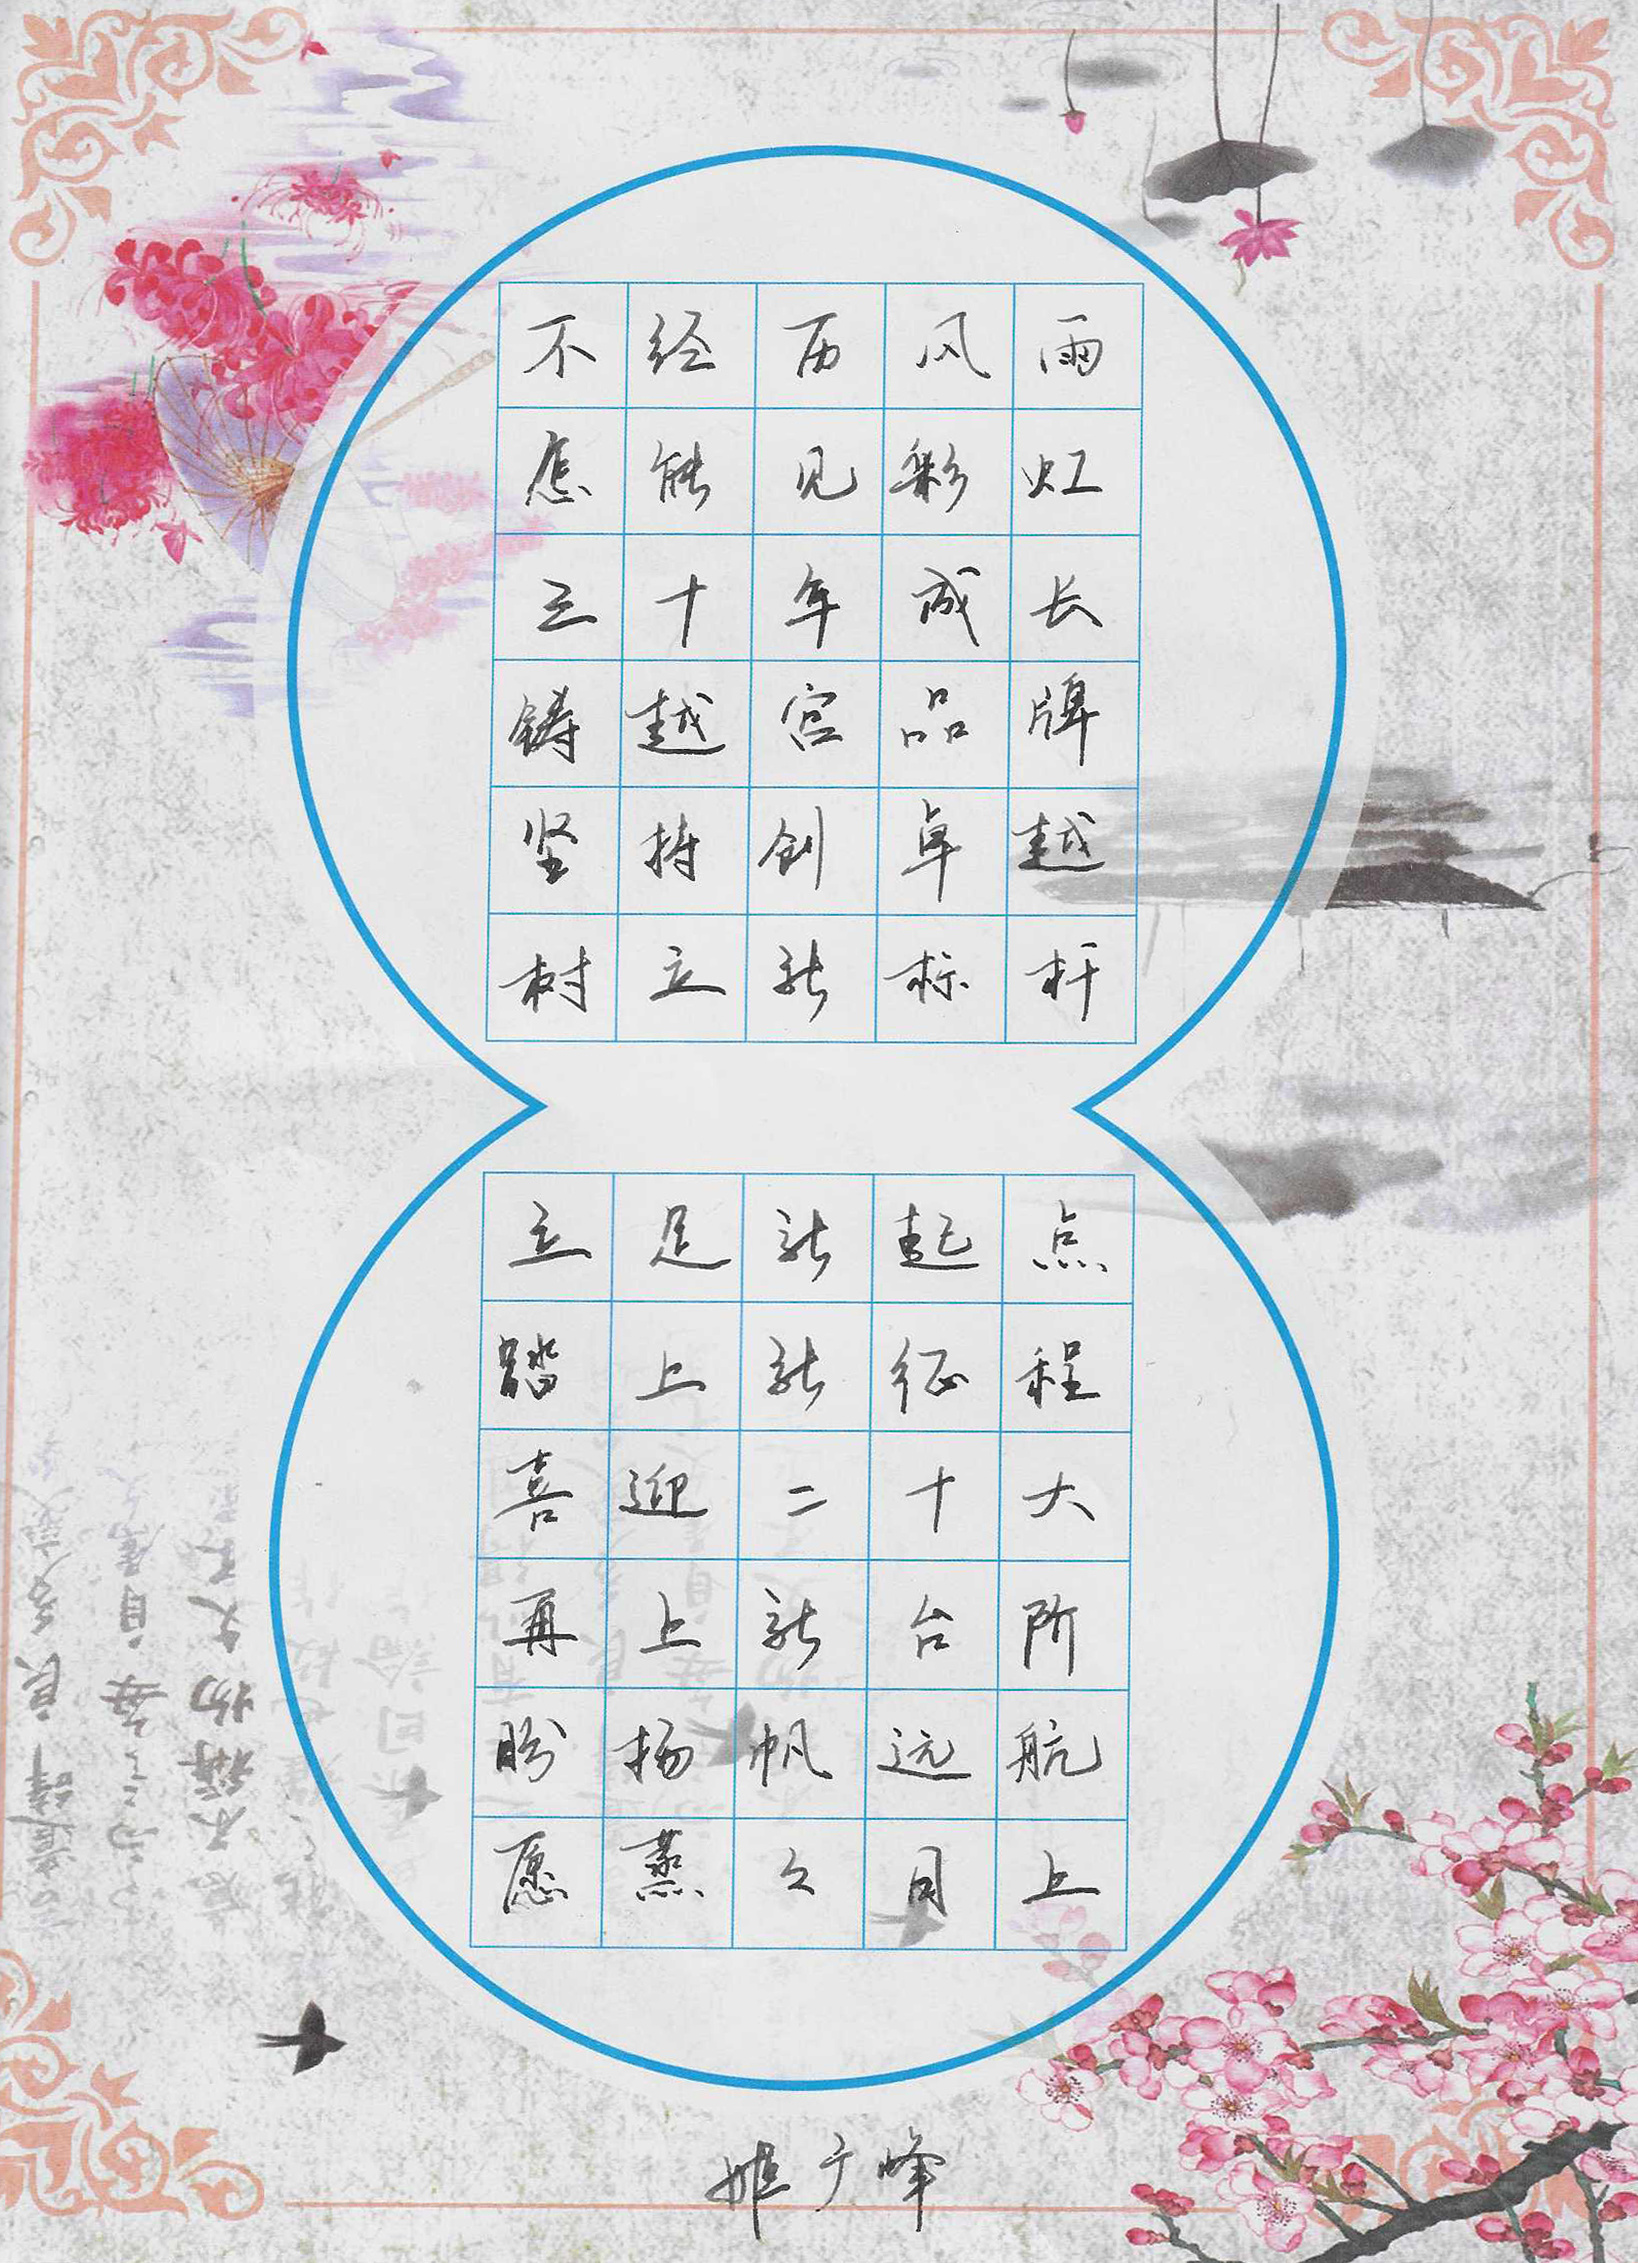 不经历风雨
怎能见彩虹
三十年成长
铸越宫品牌
坚持创卓越
树立新标杆
立足新起点
踏上新征程
喜迎二十大
再上新台阶
盼扬帆远航
愿蒸々日上
姬广峰